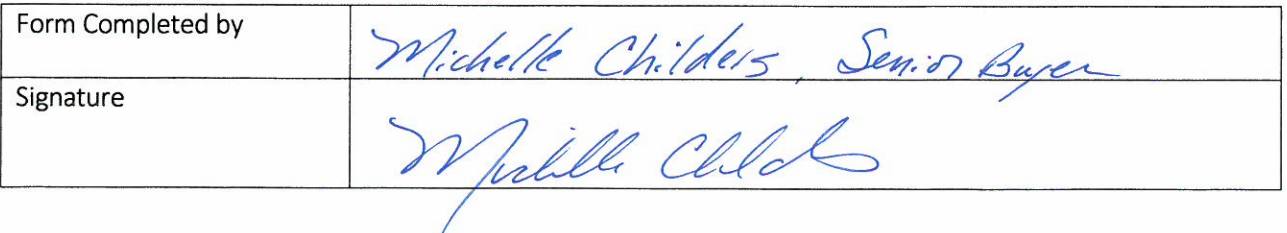 Form Completed by
Michelle Childers, Senior Buyer
Signature
Michelle Childers